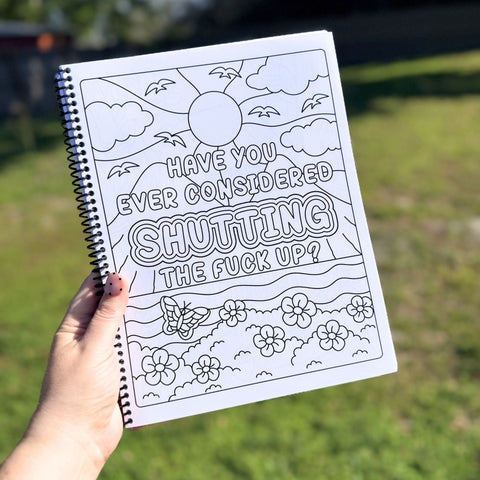 HAVE YOU
EVER CONSIDERED
SHUTTING
THE FUCK UP?